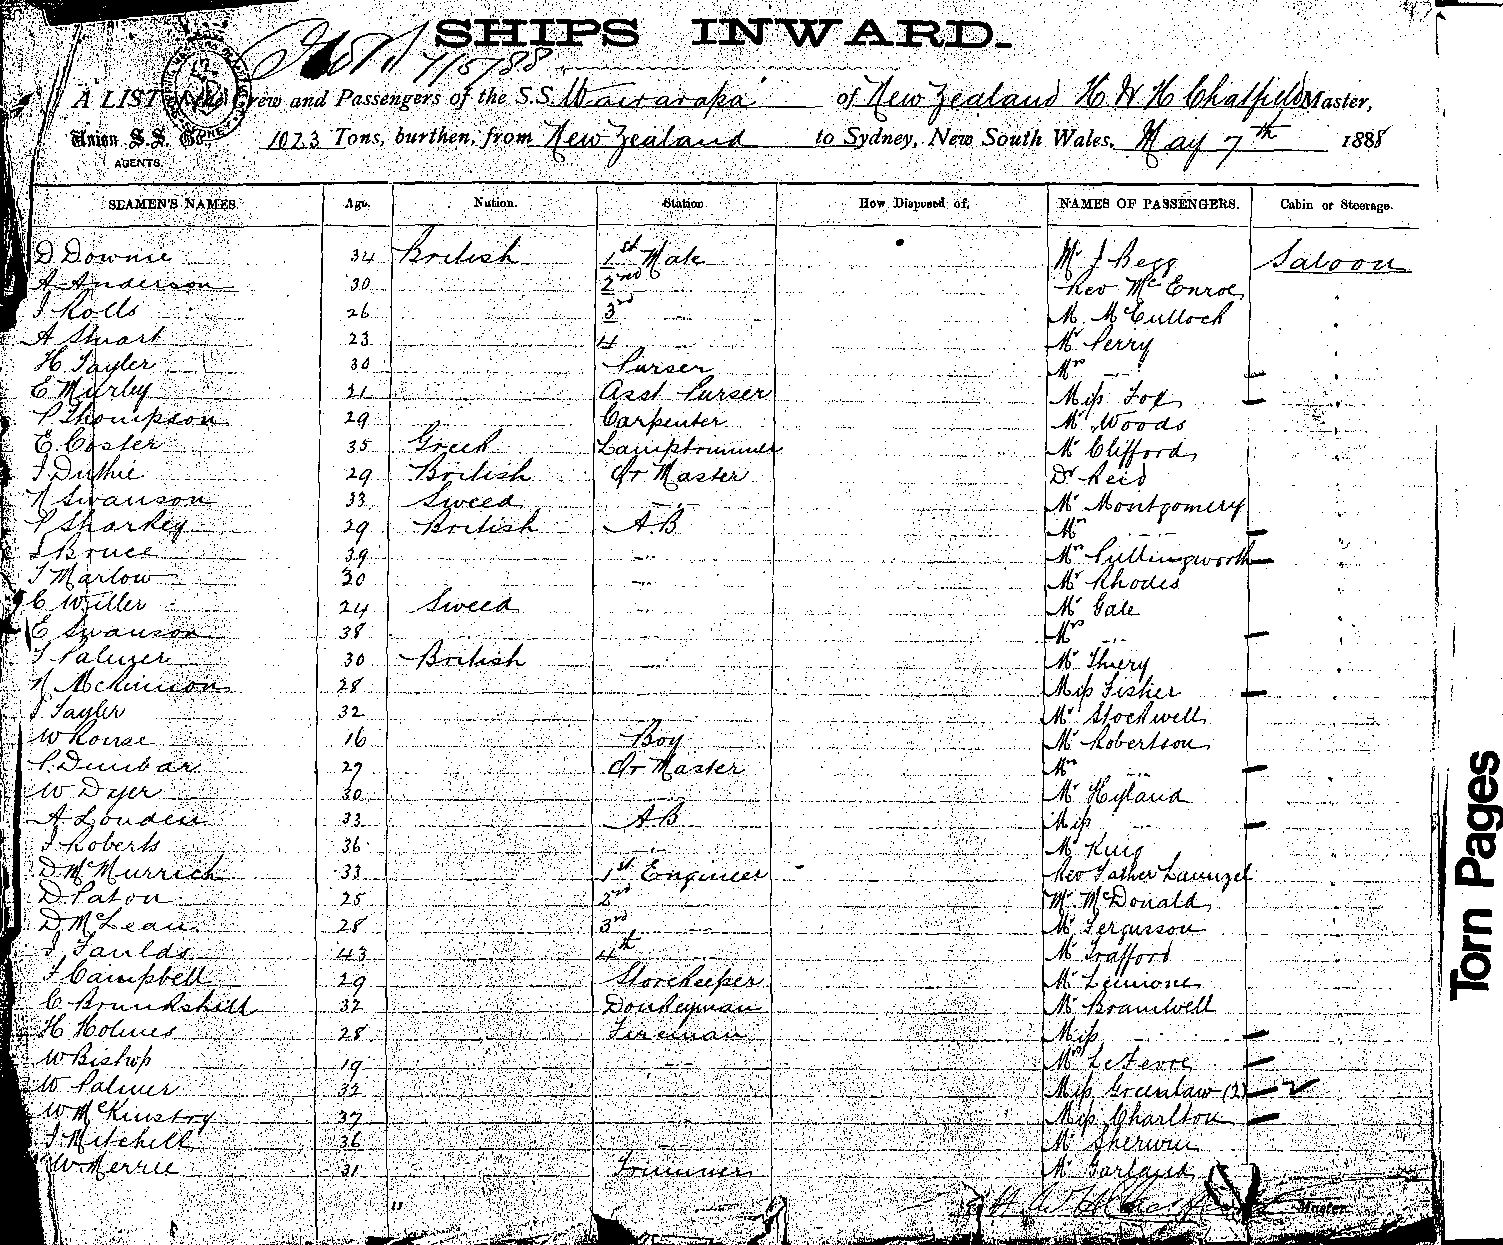 SHIPS INWARD.
7/5/88
A LIST of the Crew and Passengers of the S.S. Wairarapa of New Zealand H W H Chatfield Master,
Union S.S. Co. 1023 Tons, burthen, from New Zealand to Sydney, New South Wales, May 7th 1888
AGENTS.
SEAMEN'S NAMES Age. Nation. Station How Disposed of. NAMES OF PASSENGERS. Cabin or Steerage.
D Downie 34 British 1st Mate Mr J Begg Saloon
A Anderson 30 2nd Rev McEnroe
J Rolls 26 3rd M McCulloch
A Stuart 23 4 Mr Perry
H Tayler 30 Purser Mrs —
E Murley 21 Asst Purser Miss Fox —
P Thompson 29 Carpenter Mr Woods
E Coster 35 Greek Lamptrimmer Mr Clifford
J Duthie 29 British Qr Master Dr Reid
N Swanson 33 Sweed Mr Montgomery
P Sharkey 29 British A.B Mrs —
Bruce 39 Mrs Pullingworth —
T Marlow 30 Mr Rhodes
C Willer 24 Sweed Mr Gale
E Swanson 38 Mrs —
T Palmer 30 British Mr Thiery
N McKinnon 28 Miss Fisher —
J Tayler 32 Mr Stockwell
W Rouse 16 Boy Mr Robertson
P. Dunbar 27 Qr Master Mrs —
W Dyer 30 Mr Hyland
A Louden 33 AB Miss —
J Roberts 36 Mr King
D McMurrich 33 1st Engineer Rev Father
D Paton 25 2nd Mr McDonald
D McLean 28 3rd Mr Fergusson
J Faulds 43 4th Mr Trafford
J Campbell 29 Storekeeper Mr
C Brunkskill 32 Donkeyman Mr Bramwell
H Holmes 28 Fireman Miss —
W Bishop 19 Mrs LeFevre —
W Palmer 32 Miss Greenlaw (2) —
W McKinstry 37 Miss Charlton —
J Mitchell 36 Mr Sherwin
W Merrie 31 Trimmer Mr Garland
Master
Torn Pages